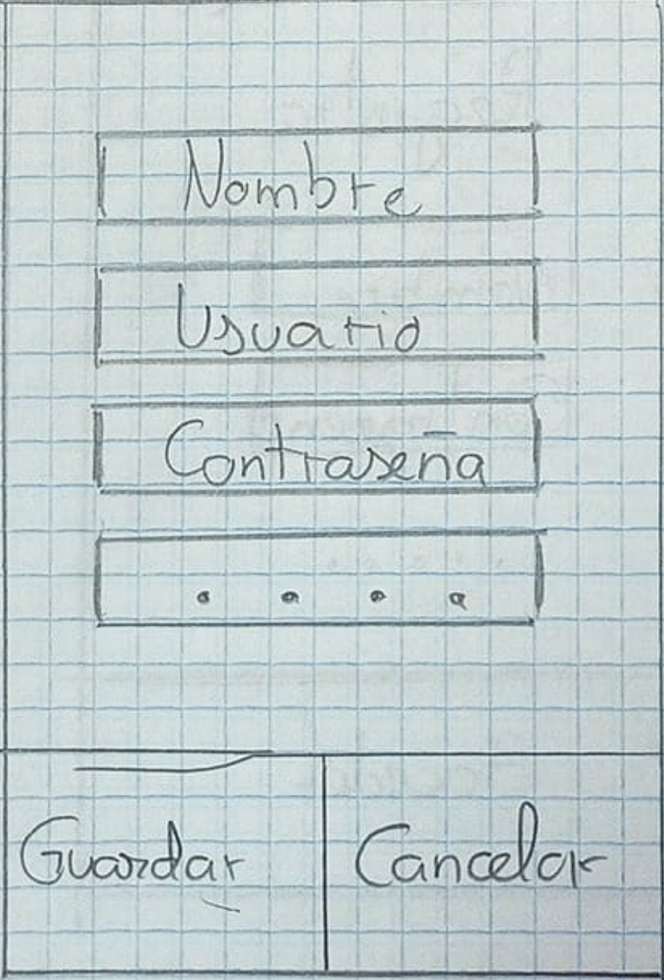 Nombre
Usuario
Contraseña
. . . .
Guardar Cancelar